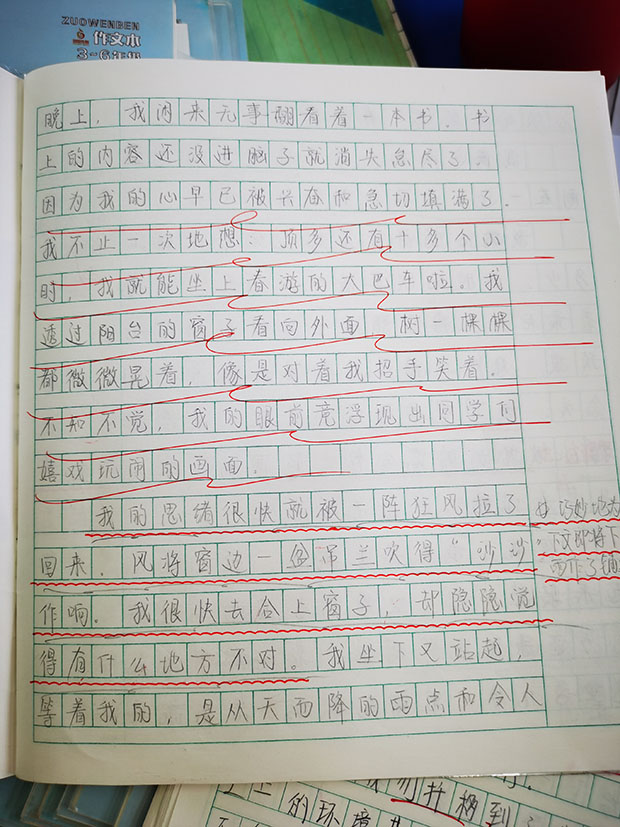 ZUOWENBEN
作文本
3-6年级
晚上，我闲来无事翻看着一本书，书
上的内容还没进脑子就消失怠尽了
因为我的心早已被兴奋和急切填满了。
我不止一次地想：顶多还有十多个小
时，我就能坐上春游的大巴车啦。我
透过阳台的窗子看向外面，树一棵棵
都微微晃着，像是对着我招手笑着。
不知不觉，我的眼前竟浮现出同学们
嬉戏玩闹的画面。
我的思绪很快就被一阵狂风拉了
巧妙地为
回来，风将窗边一盆吊兰吹得“沙沙”
下文即将下
作响。我很快去合上窗子，却隐隐觉
雨作了铺
得有什么地方不对。我坐下又站起，
等着我的，是从天而降的雨点和令人
的环境